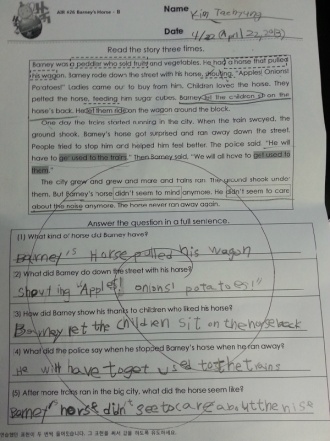 ASR h26 Barney's Horse - B
Name Kim Taehyung
Date 4/22 (April 22, 23)
Read the story three times.
Barney was a peddler who sold fruit and vegetables. He had a horse that pulled
his wagon. Barney rode down the street with his horse, shouting, "Apples! Onions!
Potatoes!" Ladies came out to buy from him. Children loved the horse. They
petted the horse, feeding him sugar cubes. Barney let the children sit on the
horse's back. He let them ride on the wagon around the block.
One day the trains started running in the city. When the train swayed, the
ground shook. Barney's horse got surprised and ran away down the street.
People tried to stop him and helped him feel better. The police said, "He will
have to get used to the trains." Then Barney said, "We will all have to get used to
them."
The city grew and grew and more and trains ran. The ground shook under
them. But Barney's horse didn't seem to mind anymore. He didn't seem to care
about the noise anymore. The horse never ran away again.
Answer the question in a full sentence.
(1) What kind of horse did Barney have?
Barney's Horse pulled his wagon
(2) What did Barney do down the street with his horse?
shouting "Apples! onions! potatoes!"
(3) How did Barney show his thanks to children who liked his horse?
Barney let the children sit on the horse back
(4) What did the police say when he stopped Barney's horse when he ran away?
He will have to get used to the trains
(5) After more trains ran in the big city, what did the horse seem like?
Barney horse didn't see to care about the nise